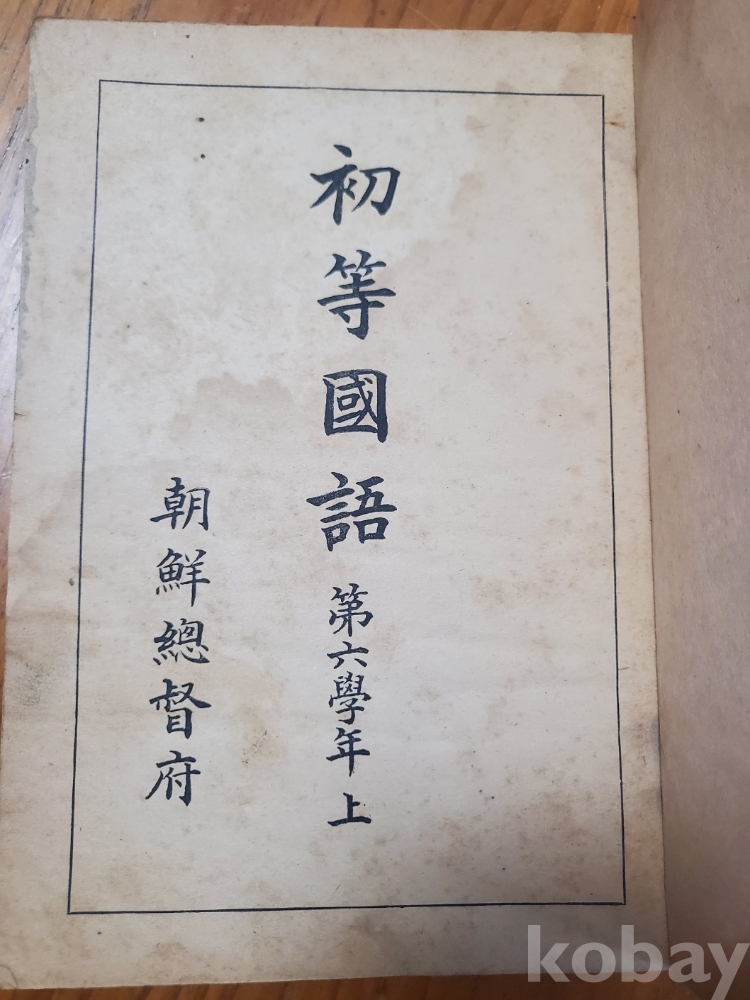 初等國語 第六學年 上
朝鮮總督府
kobay